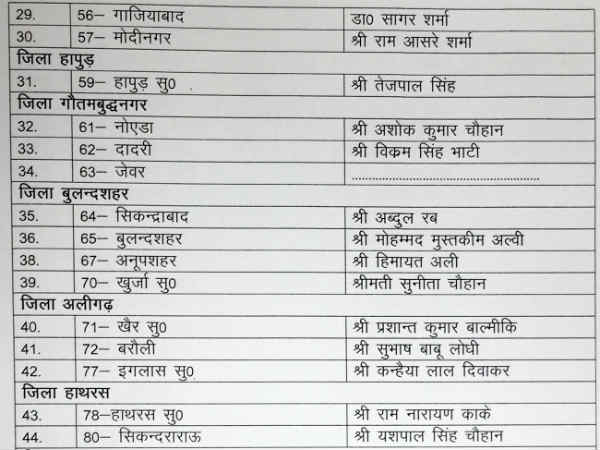 29. 56– गाजियाबाद डा0 सागर शर्मा
30. 57– मोदीनगर श्री राम आसरे शर्मा
जिला हापुड़
31. 59– हापुड़ सु0 श्री तेजपाल सिंह
जिला गौतमबुद्धनगर
32. 61– नोएडा श्री अशोक कुमार चौहान
33. 62– दादरी श्री विक्रम सिंह भाटी
34. 63– जेवर ......................................................
जिला बुलन्दशहर
35. 64– सिकन्द्राबाद श्री अब्दुल रब
36. 65– बुलन्दशहर श्री मोहम्मद मुस्तकीम अल्वी
38. 67– अनूपशहर श्री हिमायत अली
39. 70– खुर्जा सु0 श्रीमती सुनीता चौहान
जिला अलीगढ़
40. 71– खैर सु0 श्री प्रशान्त कुमार बाल्मीकि
41. 72– बरौली श्री सुभाष बाबू लोधी
42. 77– इगलास सु0 श्री कन्हैया लाल दिवाकर
जिला हाथरस
43. 78–हाथरस सु0 श्री राम नारायण काके
44. 80– सिकन्दराराऊ श्री यशपाल सिंह चौहान